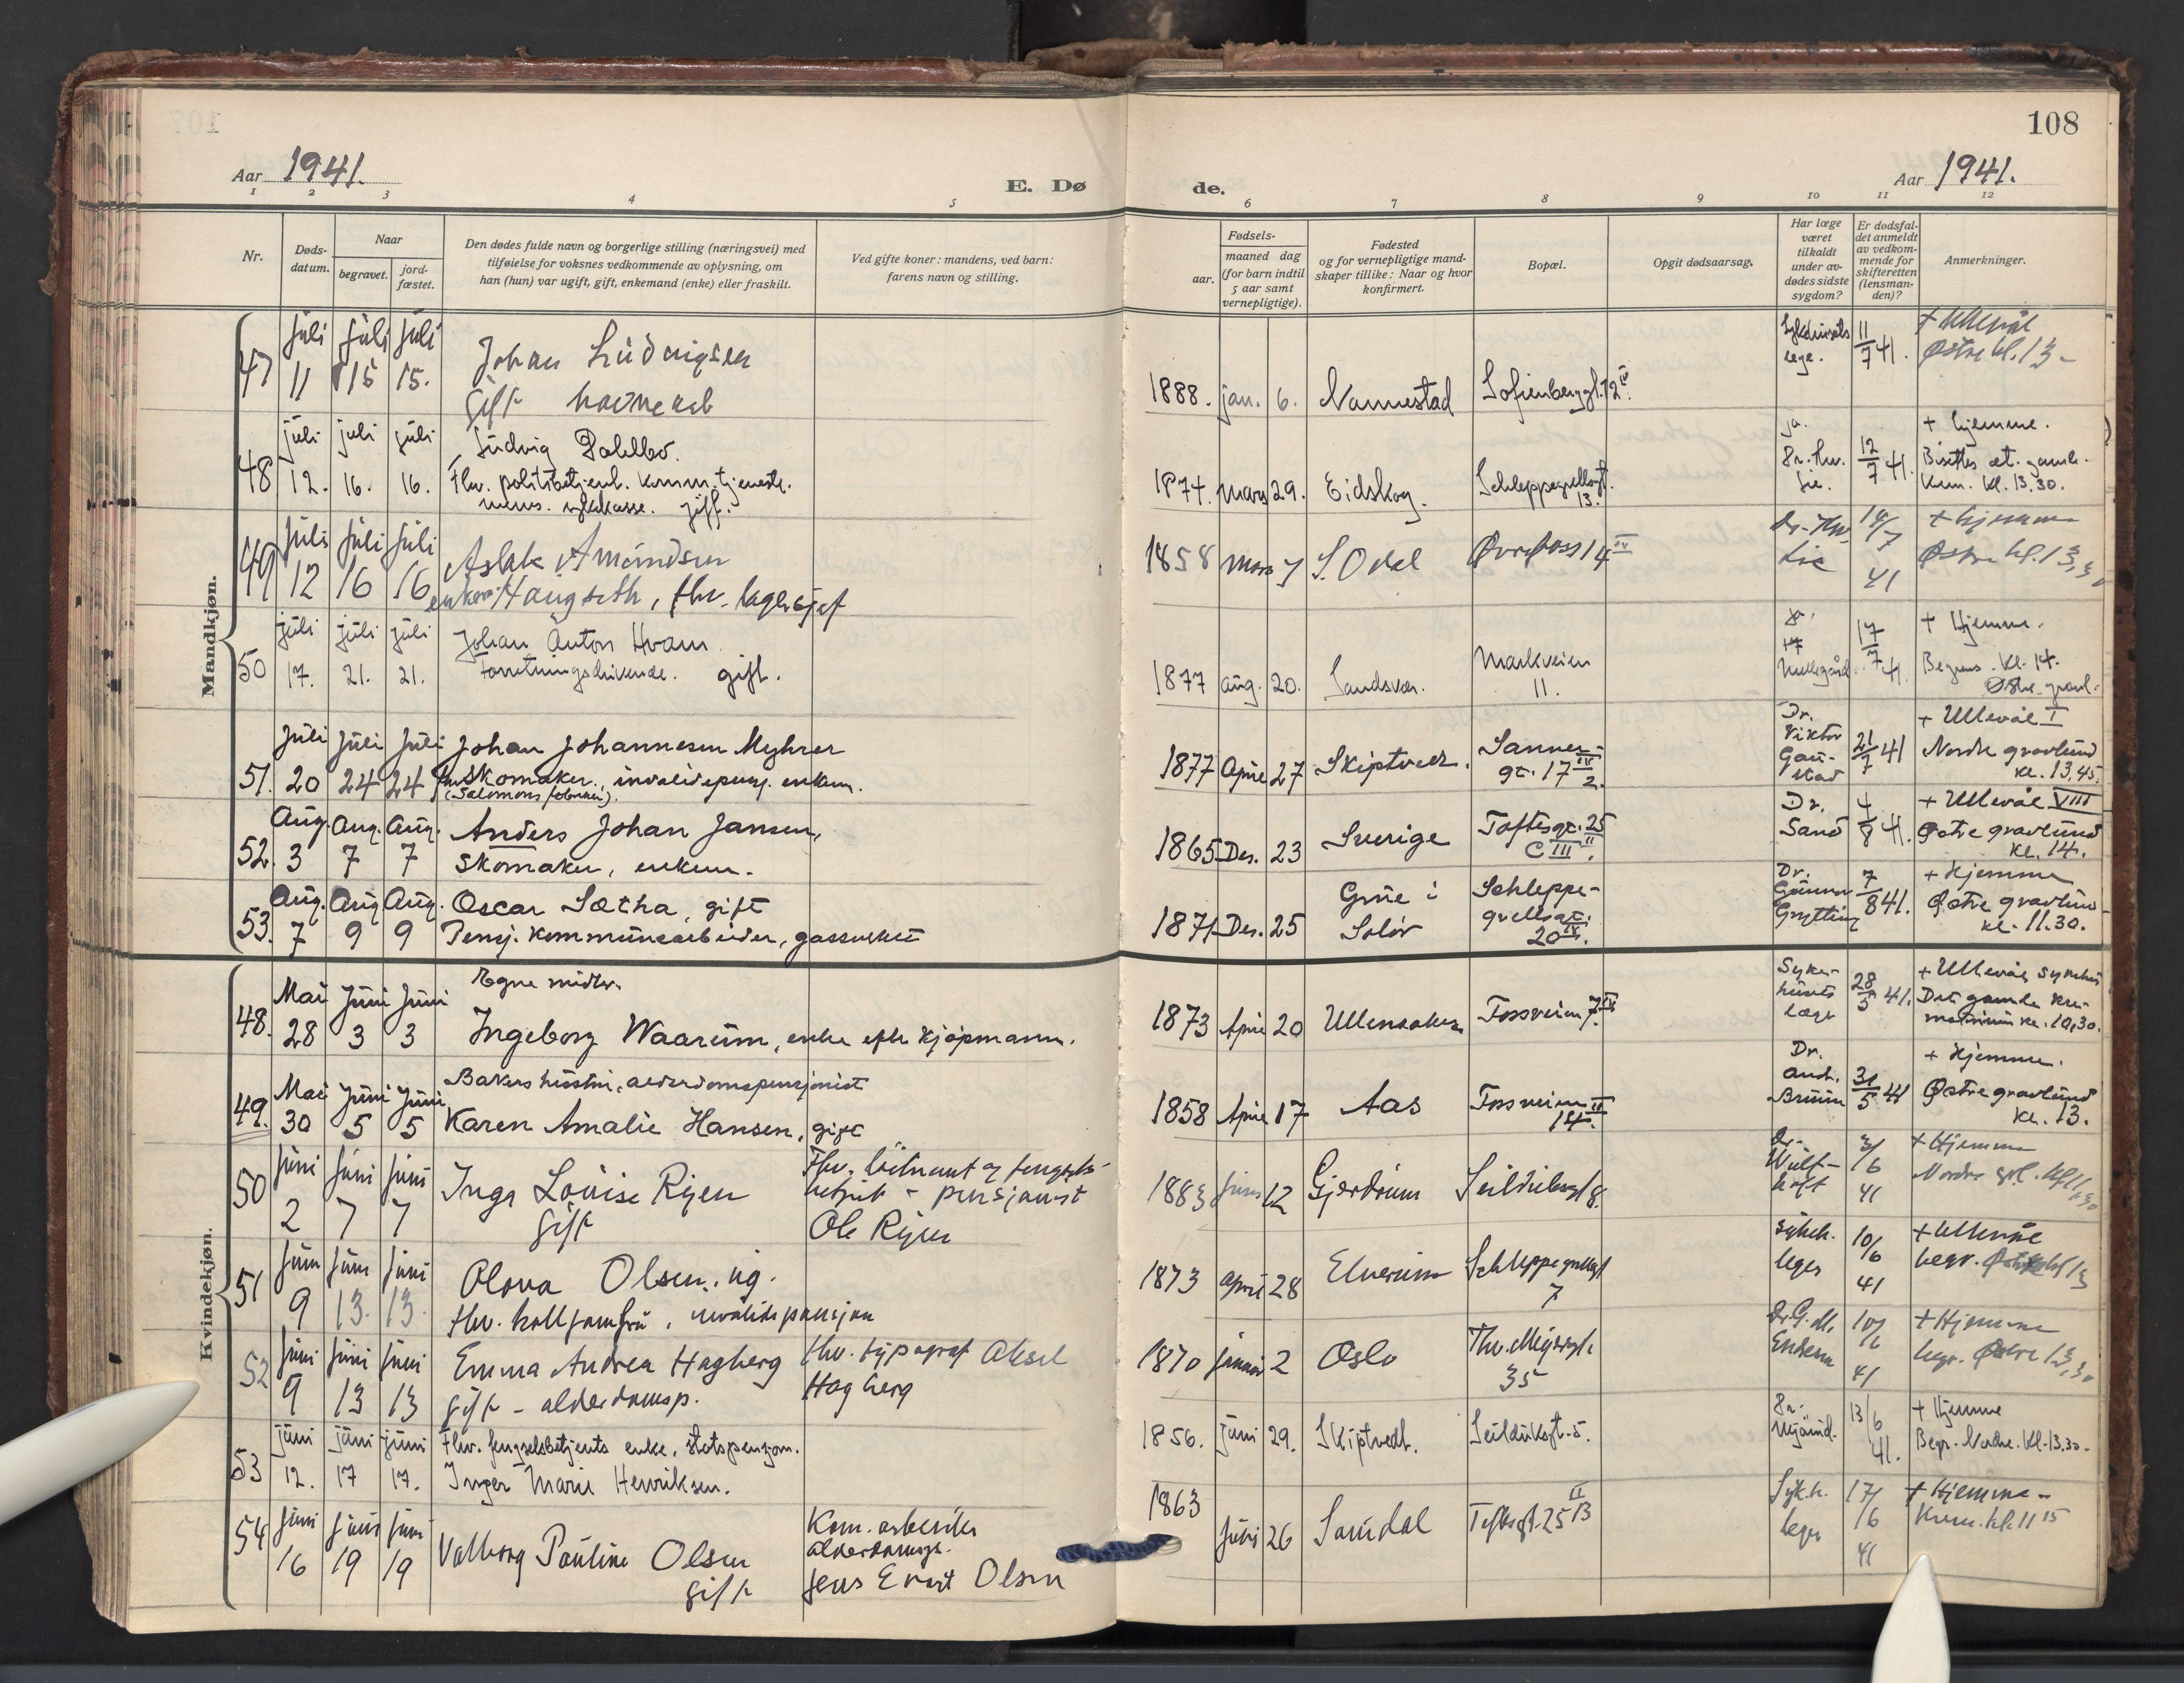 108
Aar 1941.
E. Døde.
Aar 1941.
1 2 3 4 5 6 7 8 9 10 11 12
Nr.
Døds-
datum.
Naar
begravet.
jord-
fæstet.
Den dødes fulde navn og borgerlige stilling (næringsvei) med
tilføielse for voksnes vedkommende av oplysning, om
han (hun) var ugift, gift, enkemand (enke) eller fraskilt.
Ved gifte koner: mandens, ved barn:
farens navn og stilling.
Fødsels-
aar.
maaned dag
(for barn indtil
5 aar samt
vernepligtige).
Fødested
og for vernepligtige mand-
skaper tillike: Naar og hvor
konfirmert.
Bopæl.
Opgit dødsaarsag.
Har læge
været
tilkaldt
under av-
dødes sidste
sygdom?
Er dødsfal-
det anmeldt
av vedkom-
mende for
skifteretten
(lensman-
den)?
Anmerkninger.
Mandkjøn.
47 juli 11 juli 15 juli 15.
Johan Ludvigsen
gift
1888. jan. 6. Nannestad Sofienberggt. 12 IV
lege. 11/7 41.
+ Ullevål
Østre kl. 13
48 juli 12. juli 16. juli 16.
Ludvig Dahlbo.
Fhv. politibetjent. Komm. tjeneste-
menns. sykekasse. gift.
1874. mars 29. Eidskog. Schleppegrellsgt.
13.
ja.
12/7 41.
+ hjemme.
Bisettes det. gamle.
Krem. kl. 13,30.
49 juli 12 juli 16 juli 16
Aslak Amundsen
enkem. Haugseth, fhv. lagersjef
1858 mars 7 S. Odal Øvrefoss 14 IV
14/7 41
+ hjemme
Østre kl. 13,30
50 juli 17. juli 21. juli 21.
Johan Anton Hvam
Forretningsdrivende. gift.
1877 aug. 20. Sandsvær. Markveien
11.
17/7 41.
+ Hjemme.
Begraves. kl. 14.
Østre gravl.
51. Juli 20 Juli 24 Juli 24
Johan Johannesen Myhrer
fhv. skomaker, invalidepensj. enkem.
(Salomons fabrikk).
1877 April 27 Skiptvedt. Sanner-
gt. 17 IV
2.
Dr.
Viktor
Gau-
stad
21/7 41
+ Ullevål I
Nordre gravlund
kl. 13,45.
52. Aug. 3 Aug. 7 Aug. 7
Anders Johan Jansen,
Skomaker, enkem.
1865 Des. 23 Sverige Toftesgt. 25
C III II.
Dr.
Sand
4/8 41.
+ Ullevål VIII
Østre gravlund
kl. 14.
53. Aug. 7 Aug 9 Aug. 9
Oscar Sætha, gift
Pensj. kommunearbeider, gassverket
1871 Des. 25 Grue i
Solør
Schleppe-
grellsgt.
20 IV.
Dr.
Gunnar
Grytting
7/8 41.
+ Hjemme
Østre gravlund
kl. 11.30.
Kvindekjøn.
48. Mai 28 Juni 3 Juni 3
Egne midler.
Ingeborg Waarum, enke efter kjøpmann.
1873 April 20 Ullensaker Fossveien 7 IV
Syke-
husets
læge
28/5 41.
+ Ullevål sykehus
Det gamle kre-
matorium kl. 10,30.
49. Mai 30 Juni 5 Juni 5
Bakers hustru, alderdomspensjonist
Karen Amalie Hansen, gift
1858 April 17 Aas Fossveien
14 II.
Dr.
And.
Bruun
31/5 41
+ Hjemme.
Østre gravlund
kl. 13.
50 juni 2 juni 7 juni 7
Inga Lovise Rijen
gift
Fhv. løitnant og fengsels-
betjent - pensjonist
Ole Rijen
1883 juni 12 Gjerdrum Seilduksgt 8.
Dr.
Wulf-
hoft
3/6 41
+ Hjemme
Nordre grl. kl 11,30
51 juni 9 juni 13. juni 13.
Olava Olsen, ug.
fhv. , invalidepensjon
1873 april 28 Elverum Schleppegrellsgt
7
sykeh.
leger
10/6 41
+ Ullevål
begr. Østre kl 13
52 juni 9 juni 13 juni 13
Emma Andrea Hagberg
gift - alderdomsp.
fhv. typograf Aksel
Hagberg
1870 januar 2 Oslo Thv. Meyersgt.
35
Dr. G. M.
Endsen
10/6 41
+ Hjemme
begr. Østre 13,30
53 juni 12. juni 17 juni 17.
Fhv. fengselsbetjents enke, statspensjon.
Inger Marie Henriksen.
1856. juni 29. Skiptvedt. Seilduksgt. 5.
13/6 41.
+ Hjemme
Begr. Nordre. Kl. 13.30.
54 juni 16 juni 19 juni 19
Valborg Pauline Olsen
gift
Kom. arbeider
alderdomsp.
Jens Evart Olsen
1863 juni 26 Saudal Toftesgt. 25 II B
Sykh.
leger
17/6 41
+ Hjemme
Krem. kl. 11 15